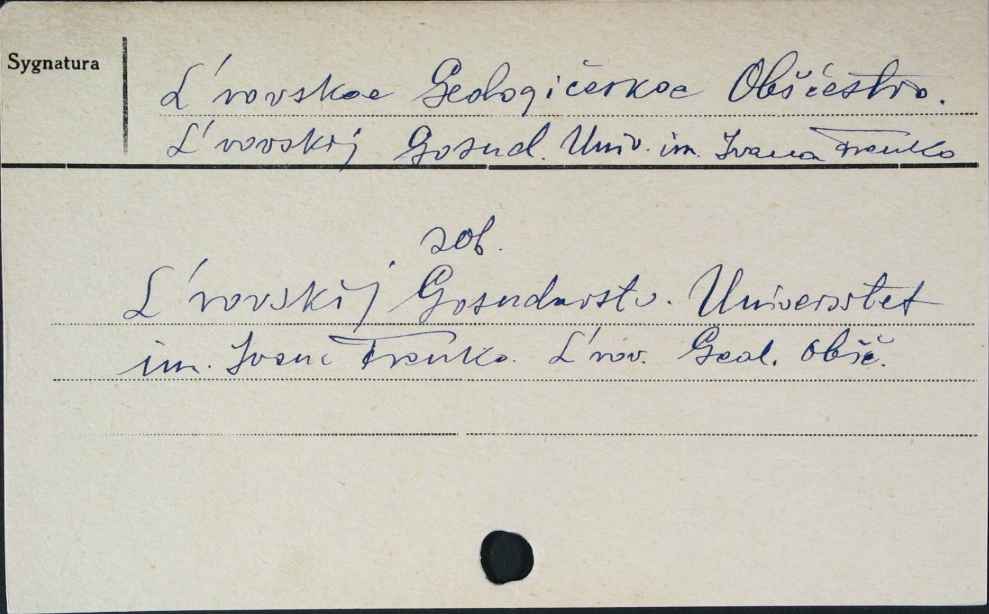 Sygnatura
L'vovskoe Geologičeskoe Obščestvo.
L'vovskij Gosud. Univ. im. Ivana Franko
zob.
L'vovskij Gosudarstv. Universitet
im. Ivana Franko. L'vov. Geol. Obšč.